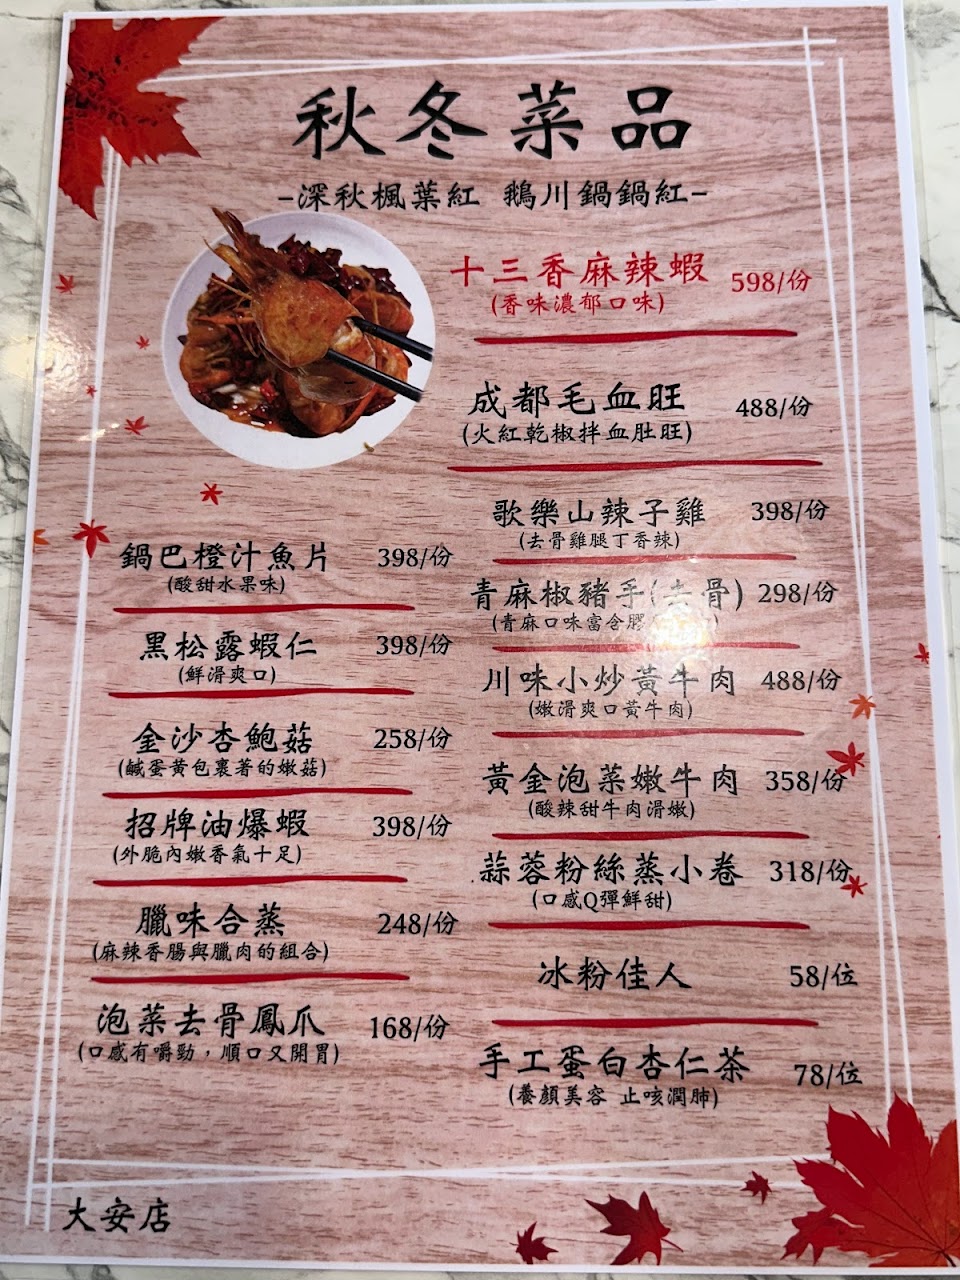 秋冬菜品
-深秋楓葉紅 鵝川鍋鍋紅-
十三香麻辣蝦 598/份
(香味濃郁口味)
成都毛血旺 488/份
(火紅乾椒拌血肚旺)
歌樂山辣子雞 398/份
(去骨雞腿丁香辣)
青麻椒豬手(去骨) 298/份
(青麻口味富含膠
川味小炒黃牛肉 488/份
(嫩滑爽口黃牛肉)
黃金泡菜嫩牛肉 358/份
(酸辣甜牛肉滑嫩)
蒜蓉粉絲蒸小卷 318/份
(口感Q彈鮮甜)
冰粉佳人 58/位
手工蛋白杏仁茶 78/位
(養顏美容 止咳潤肺)
鍋巴橙汁魚片 398/份
(酸甜水果味)
黑松露蝦仁 398/份
(鮮滑爽口)
金沙杏鮑菇 258/份
(鹹蛋黃包裹著的嫩菇)
招牌油爆蝦 398/份
(外脆內嫩香氣十足)
臘味合蒸 248/份
(麻辣香腸與臘肉的組合)
泡菜去骨鳳爪 168/份
(口感有嚼勁，順口又開胃)
大安店